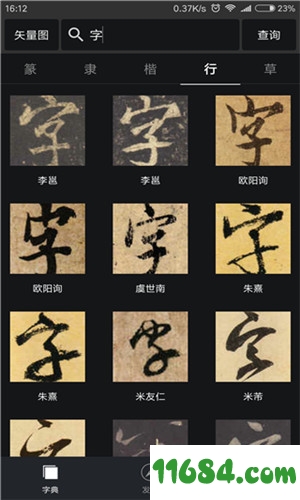 16:12 0.37K/s 23%
矢量图 字 查询
篆 隶 楷 行 草
字 字 字
李邕 李邕 欧阳询
字 字 字
欧阳询 虞世南 朱熹
字 字 字
朱熹 米友仁 米芾
字典 发
11684.com